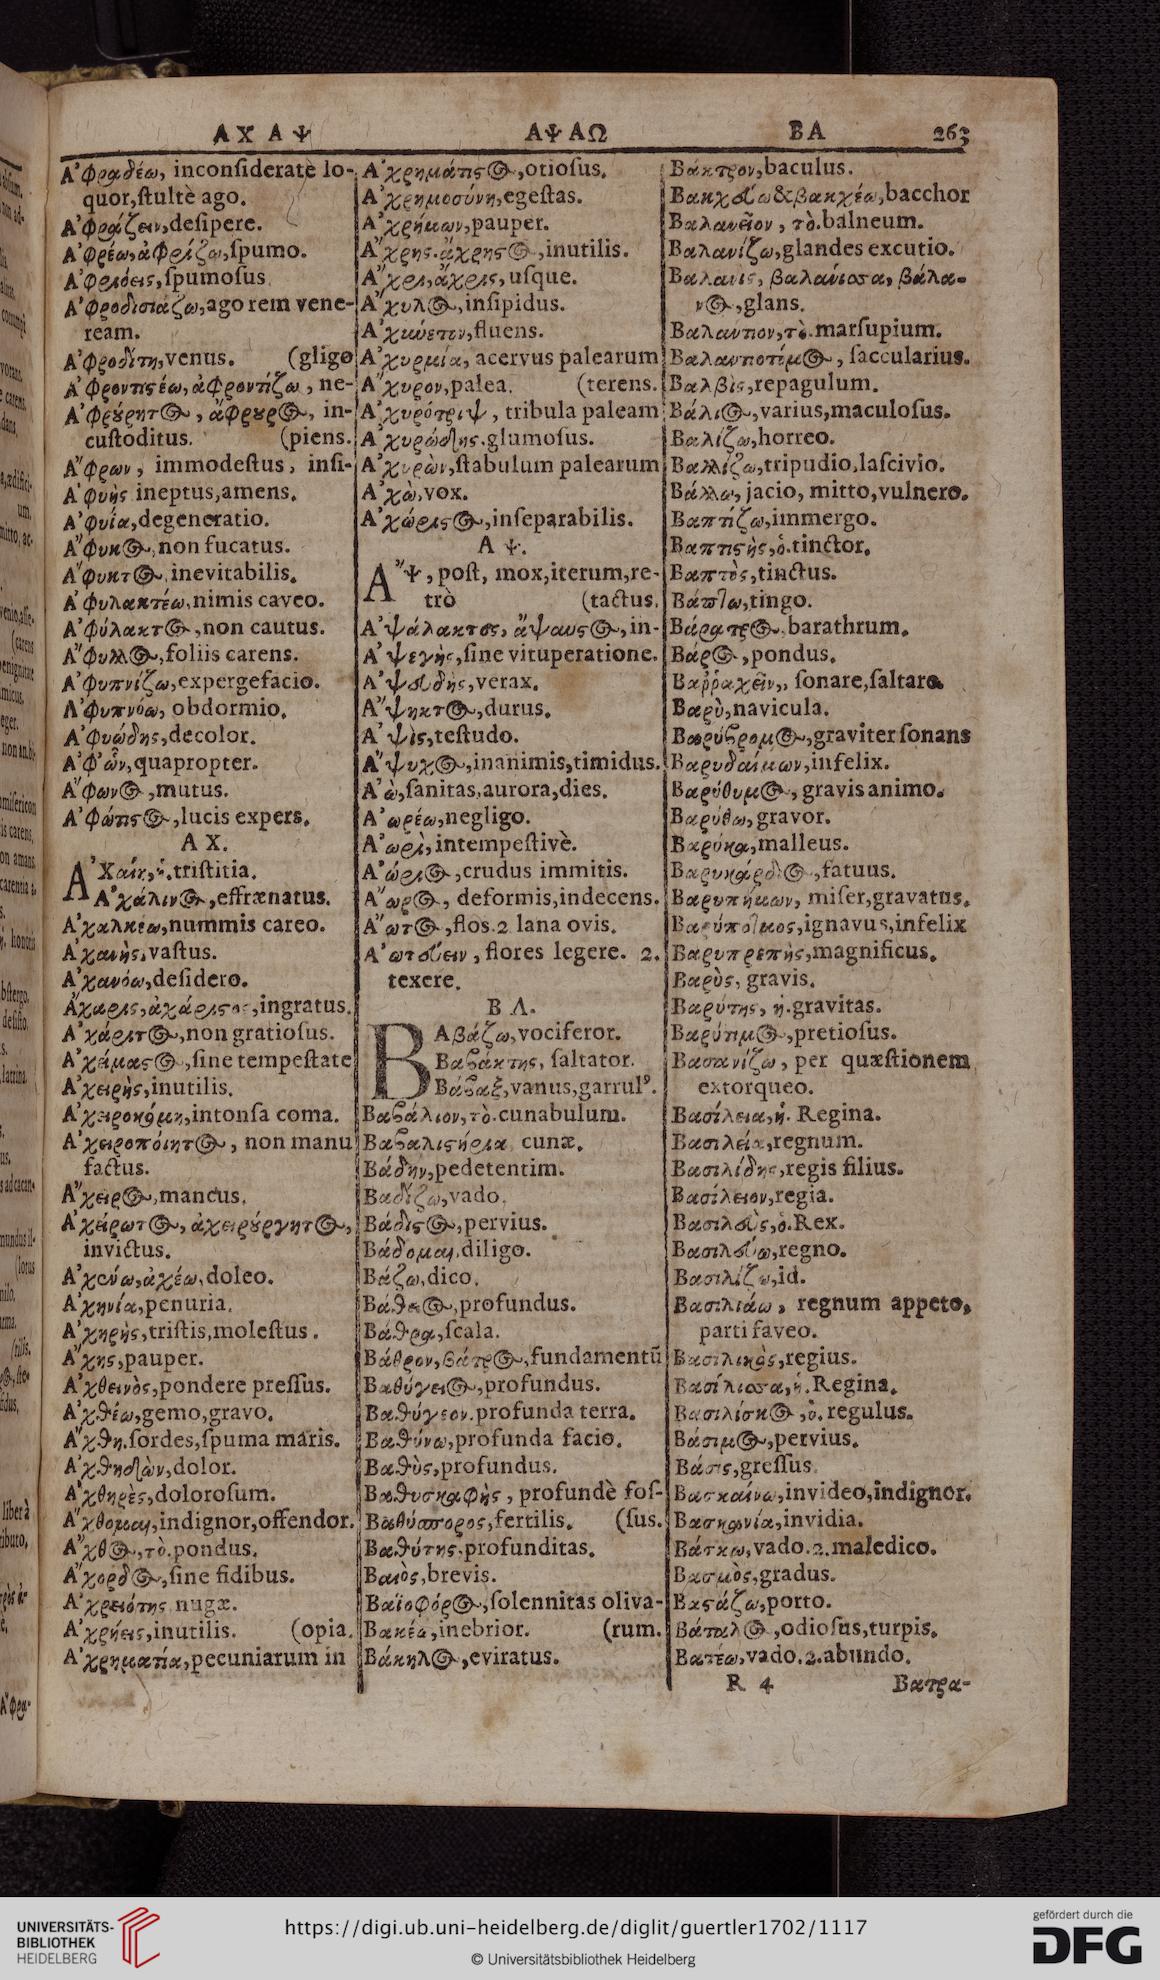 ΑΧ ΑΨ ΑΨ ΑΩ ΒΑ 263
Ἀφραδέω, inconsideratè lo-
quor,stultè ago.
Ἀφράζειν,desipere.
Ἀφρέω,ἀφρίζω,spumo.
Ἀφριόεις,spumosus.
Ἀφροδισιάζω,ago rem vene-
ream.
Ἀφροδίτη,venus. (gligo
Ἀφροντιςέω,ἀφροντίζω, ne-
Ἀφρούρητος, ἄφρουρος, in-
custoditus. (piens.
Ἄφρων, immodestus, insi-
Ἀφυὴς ineptus,amens.
Ἀφυΐα,degeneratio.
Ἄφυκος,non fucatus.
Ἄφυκτος,inevitabilis.
Ἀφυλακτέω,nimis caveo.
Ἀφύλακτος,non cautus.
Ἄφυλλος,foliis carens.
Ἀφυπνίζω,expergefacio.
Ἀφυπνόω, obdormio.
Ἀφυώδης,decolor.
Ἀφ' ὧν,quapropter.
Ἄφωνος,mutus.
Ἀφώτιστος,lucis expers.
Α Χ.
Ἀχαίη,ἡ.tristitia.
Ἀχάλινος,effrænatus.
Ἀχαλκέω,nummis careo.
Ἀχανὴς,vastus.
Ἀχανόω,desidero.
Ἄχαρις,ἀχάριστος,ingratus.
Ἀχάριτος,non gratiosus.
Ἀχείμαστος,sine tempestate
Ἀχειρὴς,inutilis.
Ἀχειροκόμη,intonsa coma.
Ἀχειροποίητος, non manu
factus.
Ἄχειρος,mancus.
Ἀχείρωτος, ἀχειρούργητος,
invictus.
Ἀχεύω,ἀχέω,doleo.
Ἀχηνία,penuria.
Ἀχηρὴς,tristis,molestus.
Ἄχης,pauper.
Ἀχθεινὸς,pondere pressus.
Ἀχθέω,gemo,gravo.
Ἄχθη.sordes,spuma maris.
Ἀχθηδὼν,dolor.
Ἀχθηρὲς,dolorosum.
Ἄχθομαι,indignor,offendor.
Ἄχθος,τὸ.pondus.
Ἄχορδος,sine fidibus.
Ἀχρειότης nugæ.
Ἀχρήεις,inutilis. (opia.
Ἀχρηματία,pecuniarum in
Ἀχρημάτιστος,otiosus.
Ἀχρημοσύνη,egestas.
Ἀχρήμων,pauper.
Ἄχρης.ἄχρηστος,inutilis.
Ἄχρι,ἄχρις,usque.
Ἄχυλος,insipidus.
Ἀχυνετον,fluens.
Ἀχυρμία, acervus palearum
Ἄχυρον,palea. (terens.
Ἀχυρότριψ, tribula paleam
Ἀχυρώδης.glumosus.
Ἀχυρὼν,stabulum palearum
Ἀχὼ,vox.
Ἀχώριστος,inseparabilis.
Α Ψ.
Ἄψ, post, mox,iterum,re-
trò (tactus.
Ἀψάλακτος, ἄψαυστος,in-
Ἀψεγὴς,sine vituperatione.
Ἀψευδὴς,verax.
Ἄψηκτος,durus.
Ἀψὶς,testudo.
Ἄψυχος,inanimis,timidus.
Ἀὼ,sanitas,aurora,dies.
Ἀωρέω,negligo.
Ἀωρὶ,intempestivè.
Ἀώριος,crudus immitis.
Ἄωρος, deformis,indecens.
Ἄωτος,flos.2 lana ovis.
Ἀωτεύειν, flores legere. 2.
texere.
Β Α.
Βαβάζω,vociferor.
Βαβάκτης, saltator.
Βάβαξ,vanus,garrulꝰ.
Βαβάλιον,τὸ.cunabulum.
Βαβαλιστήρια cunæ.
Βάδην,pedetentim.
Βαδίζω,vado.
Βάδιστος,pervius.
Βάδομαι,diligo.
Βάζω,dico.
Βάθειος,profundus.
Βάθρα,scala.
Βάθρον,βάτρος,fundamentū
Βαθύγειος,profundus.
Βαθύγεον.profunda terra.
Βαθύνω,profunda facio.
Βαθὺς,profundus.
Βαθυσκαφὴς, profundè fos-
Βαθύσπορος,fertilis. (sus.
Βαθύτης.profunditas.
Βαιὸς,brevis.
Βαϊοφόρος,solennitas oliva-
Βακέω,inebrior. (rum.
Βάκηλος,eviratus.
Βάκτρον,baculus.
Βακχεύω&βακχέω,bacchor
Βαλανεῖον, τὸ.balneum.
Βαλανίζω,glandes excutio.
Βαλανὶς, βαλανίσσα, βάλα-
νος,glans.
Βαλάντιον,τὸ.marsupium.
Βαλαντιοτόμος, saccularius.
Βαλβὶς,repagulum.
Βάλιος,varius,maculosus.
Βαλίζω,horreo.
Βαλλίζω,tripudio,lascivio.
Βάλλω, jacio, mitto,vulnero.
Βαπτίζω,immergo.
Βαπτιστὴς,ὁ.tinctor.
Βαπτὸς,tinctus.
Βάπτω,tingo.
Βάρατρος.barathrum.
Βάρος,pondus.
Βαῤῥαχεῖν,, sonare,saltare
Βαρὺ,navicula.
Βαρύβρομος,graviter sonans
Βαρυδαίμων,infelix.
Βαρύθυμος, gravis animo.
Βαρύθω,gravor.
Βαρύκα,malleus.
Βαρυκάρδιος,fatuus.
Βαρυπήμων, miser,gravatus.
Βαρύποτμος,ignavus,infelix
Βαρυπρεπὴς,magnificus.
Βαρὺς, gravis.
Βαρύτης, ἡ.gravitas.
Βαρύτιμος,pretiosus.
Βασανίζω, per quæstionem
extorqueo.
Βασίλεια,ἡ. Regina.
Βασιλεία,regnum.
Βασιλίδης,regis filius.
Βασίλειον,regia.
Βασιλεὺς,ὁ.Rex.
Βασιλεύω,regno.
Βασιλίζω,id.
Βασιλιάω, regnum appeto,
parti faveo.
Βασιλικὸς,regius.
Βασίλισσα,ἡ.Regina.
Βασιλίσκος,ὁ.regulus.
Βάσιμος,pervius.
Βάσις,gressus.
Βασκαίνω,invideo,indignor.
Βασκανία,invidia.
Βάσκω,vado.2.maledico.
Βασμὸς,gradus.
Βαστάζω,porto.
Βάταλος,odiosus,turpis.
Βατέω,vado.2.abundo.
R 4 Βατρα-
UNIVERSITÄTS-
BIBLIOTHEK
HEIDELBERG
https://digi.ub.uni-heidelberg.de/diglit/guertler1702/1117
© Universitätsbibliothek Heidelberg
gefördert durch die
DFG